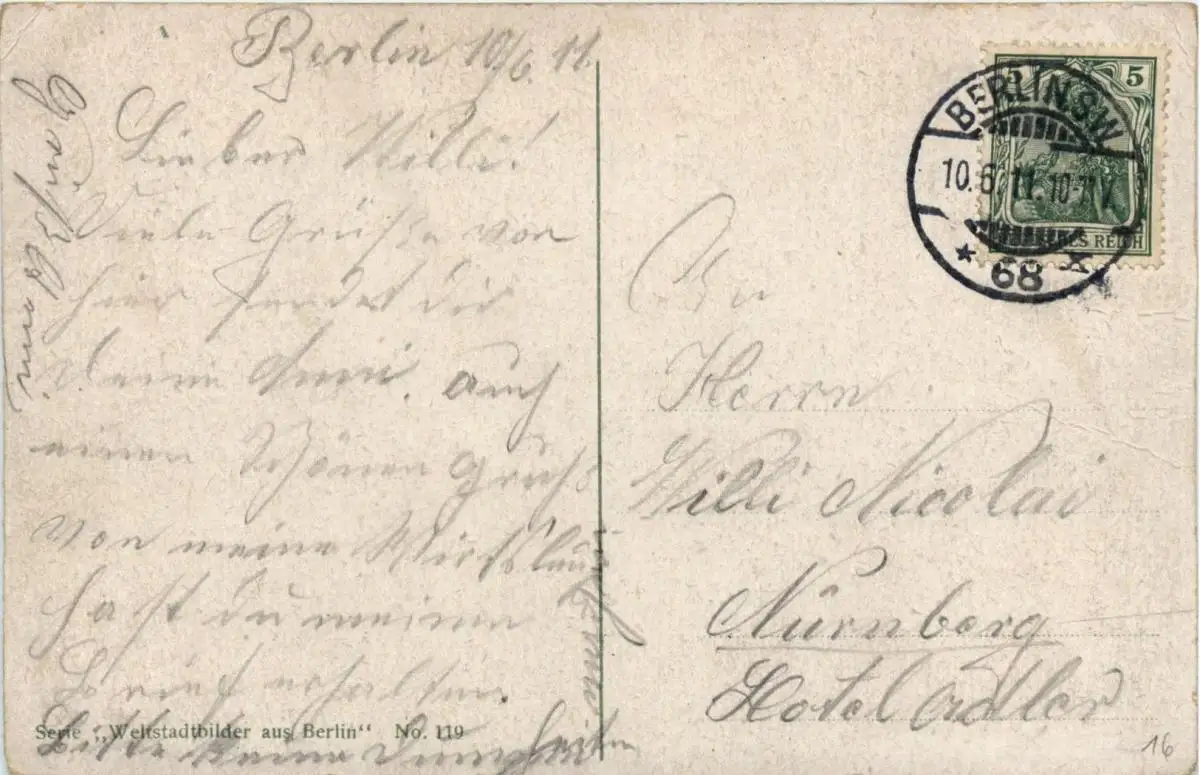 Berlin 10/6. 11.
Lieber Willi!
Viele Grüße von
hier sendet dir
deine Anni. auch
einen Schönen Gruß
von meine Wirtsleute
hast du meinen
Brief erhalten.
Bitte keine Dummheiten
5 5
BERLIN.SW.
10.6.11.10-11V.
* 68 *
DEUTSCHES REICH
An
Herrn
Willi Nicolai
Nürnberg
Hotel Adler
Serie „Weltstadtbilder aus Berlin" No. 119
16